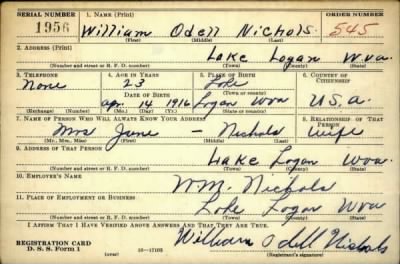 SERIAL NUMBER 1. NAME (Print) ORDER NUMBER
1956 William Odell Nichols 545
(First) (Middle) (Last)
2. ADDRESS (Print)
Lake Logan Wva.
(Number and street or R. F. D. number) (Town) (County) (State)
3. TELEPHONE 4. AGE IN YEARS 5. PLACE OF BIRTH 6. COUNTRY OF CITIZENSHIP
None 23 Lake
DATE OF BIRTH (Town or county)
Apr. 14 1916 Logan Wva U.S.a.
(Exchange) (Number) (Mo.) (Day) (Yr.) (State or country)
7. NAME OF PERSON WHO WILL ALWAYS KNOW YOUR ADDRESS 8. RELATIONSHIP OF THAT PERSON
Mrs June – Nichols Wife
(Mr., Mrs., Miss) (First) (Middle) (Last)
9. ADDRESS OF THAT PERSON
Lake Logan Wva.
(Number and street or R. F. D. number) (Town) (County) (State)
10. EMPLOYER'S NAME
WM. Nichols
11. PLACE OF EMPLOYMENT OR BUSINESS
Lake Logan Wva
(Number and street or R. F. D. number) (Town) (County) (State)
I AFFIRM THAT I HAVE VERIFIED ABOVE ANSWERS AND THAT THEY ARE TRUE.
REGISTRATION CARD
D. S. S. Form 1 16—17105 William Odell Nichols
(Registrant's signature)